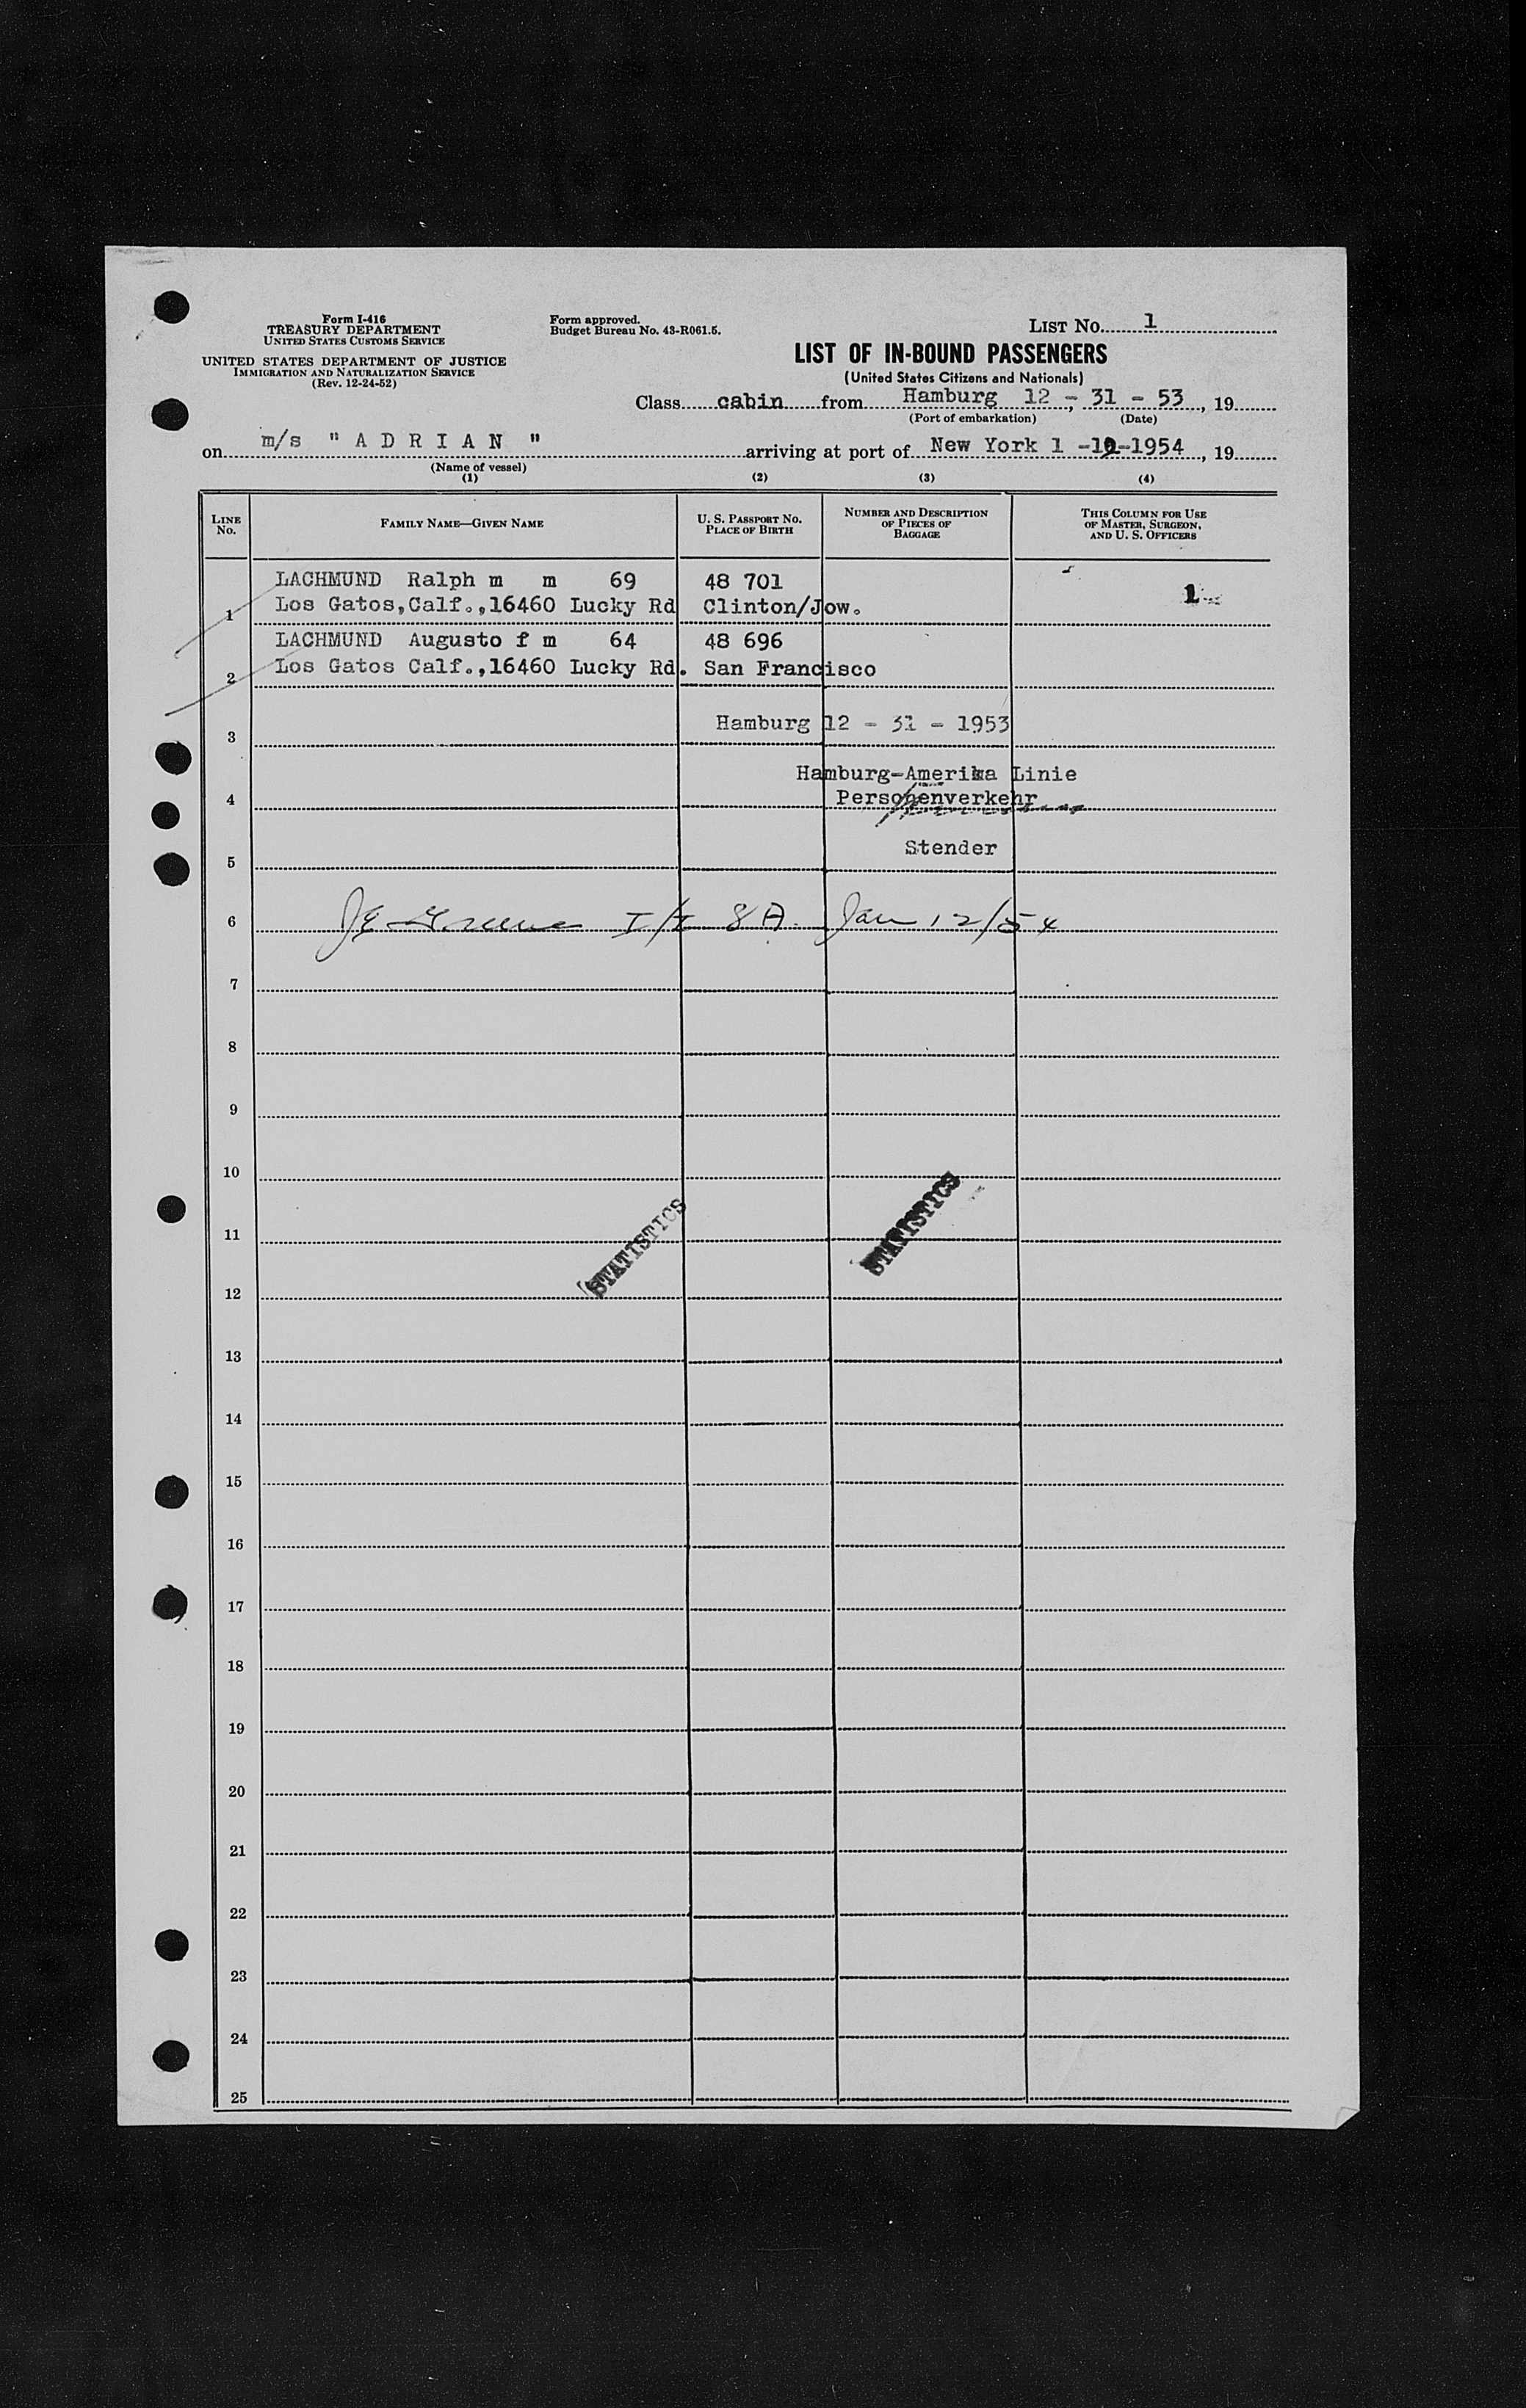 Form I-416
TREASURY DEPARTMENT
UNITED STATES CUSTOMS SERVICE
UNITED STATES DEPARTMENT OF JUSTICE
IMMIGRATION AND NATURALIZATION SERVICE
(Rev. 12-24-52)
Form approved.
Budget Bureau No. 43-R061.5.
LIST NO. 1
LIST OF IN-BOUND PASSENGERS
(United States Citizens and Nationals)
Class cabin from Hamburg 12 - 31 - 53, 19
(Port of embarkation) (Date)
on m/s " A D R I A N " arriving at port of New York 1 - -1954, 19
(Name of vessel)
(1) (2) (3) (4)
LINE No. FAMILY NAME—GIVEN NAME U. S. PASSPORT NO. PLACE OF BIRTH NUMBER AND DESCRIPTION OF PIECES OF BAGGAGE THIS COLUMN FOR USE OF MASTER, SURGEON, AND U. S. OFFICERS
LACHMUND Ralph m m 69 48 701 1
1 Los Gatos,Calf.,16460 Lucky Rd Clinton/Jow.
LACHMUND Augusto f m 64 48 696
2 Los Gatos Calf.,16460 Lucky Rd. San Francisco
3 Hamburg 12 - 31 - 1953
Hamburg-Amerika Linie
4 Personenverkehr
5 Stender
6 Jan 12/54
7
8
9
10
11 STATISTICS STATISTICS
12
13
14
15
16
17
18
19
20
21
22
23
24
25